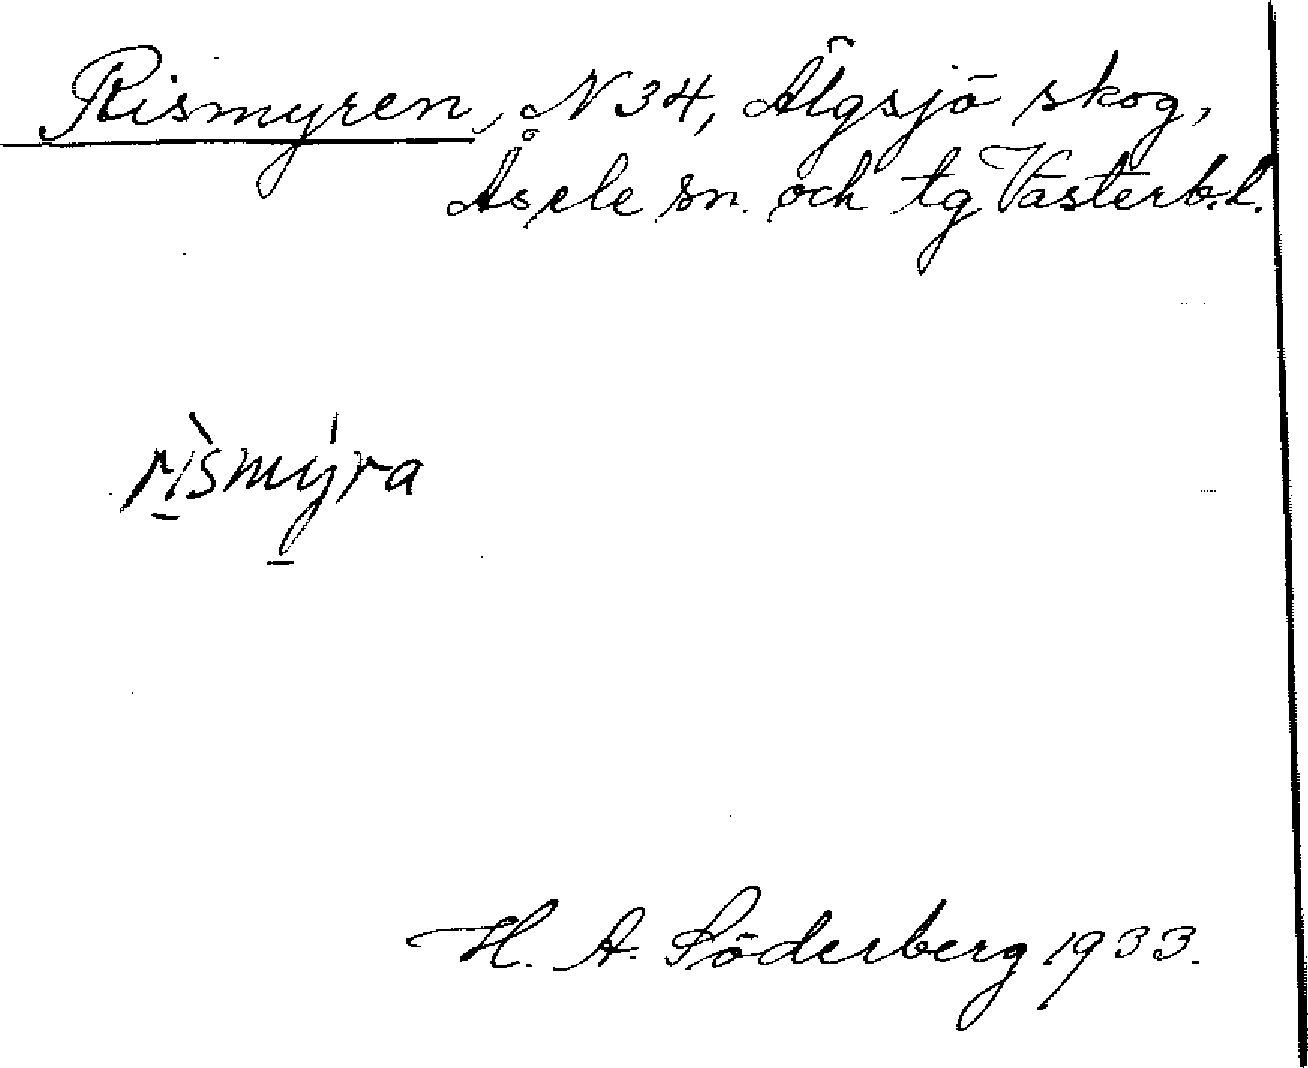 Rismyren, N 34, Älgsjö skog,
Åsele sn. och tg Västerb.l.
rìsmýra
H. A. Söderberg 1933.